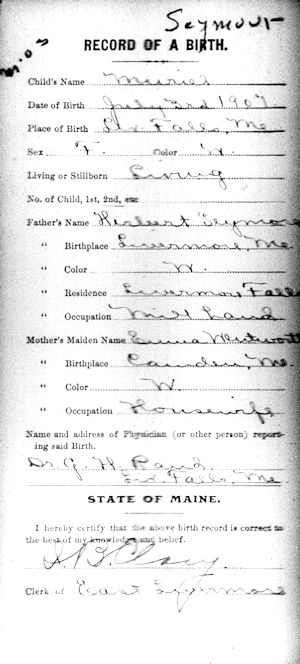 Seymour
RECORD OF A BIRTH.
Child's Name Muriel
Date of Birth July 3rd 1907
Place of Birth Liv Falls, Me
Sex F. Color W.
Living or Stillborn Living
No. of Child, 1st, 2nd, etc
Father's Name Herbert Seymore
" Birthplace Livermore, Me
" Color W.
" Residence Livermore Falls
" Occupation Mill Hand
Mother's Maiden Name Emma Wentworth
" Birthplace Camden, Me.
" Color W.
" Occupation Housewife
Name and address of Physician (or other person) report-
ing said Birth.
Dr. G. H. Rand.
Liv. Falls, Me
STATE OF MAINE.
I hereby certify that the above birth record is correct to
the best of my knowledge and belief.
Clerk of East Livermore